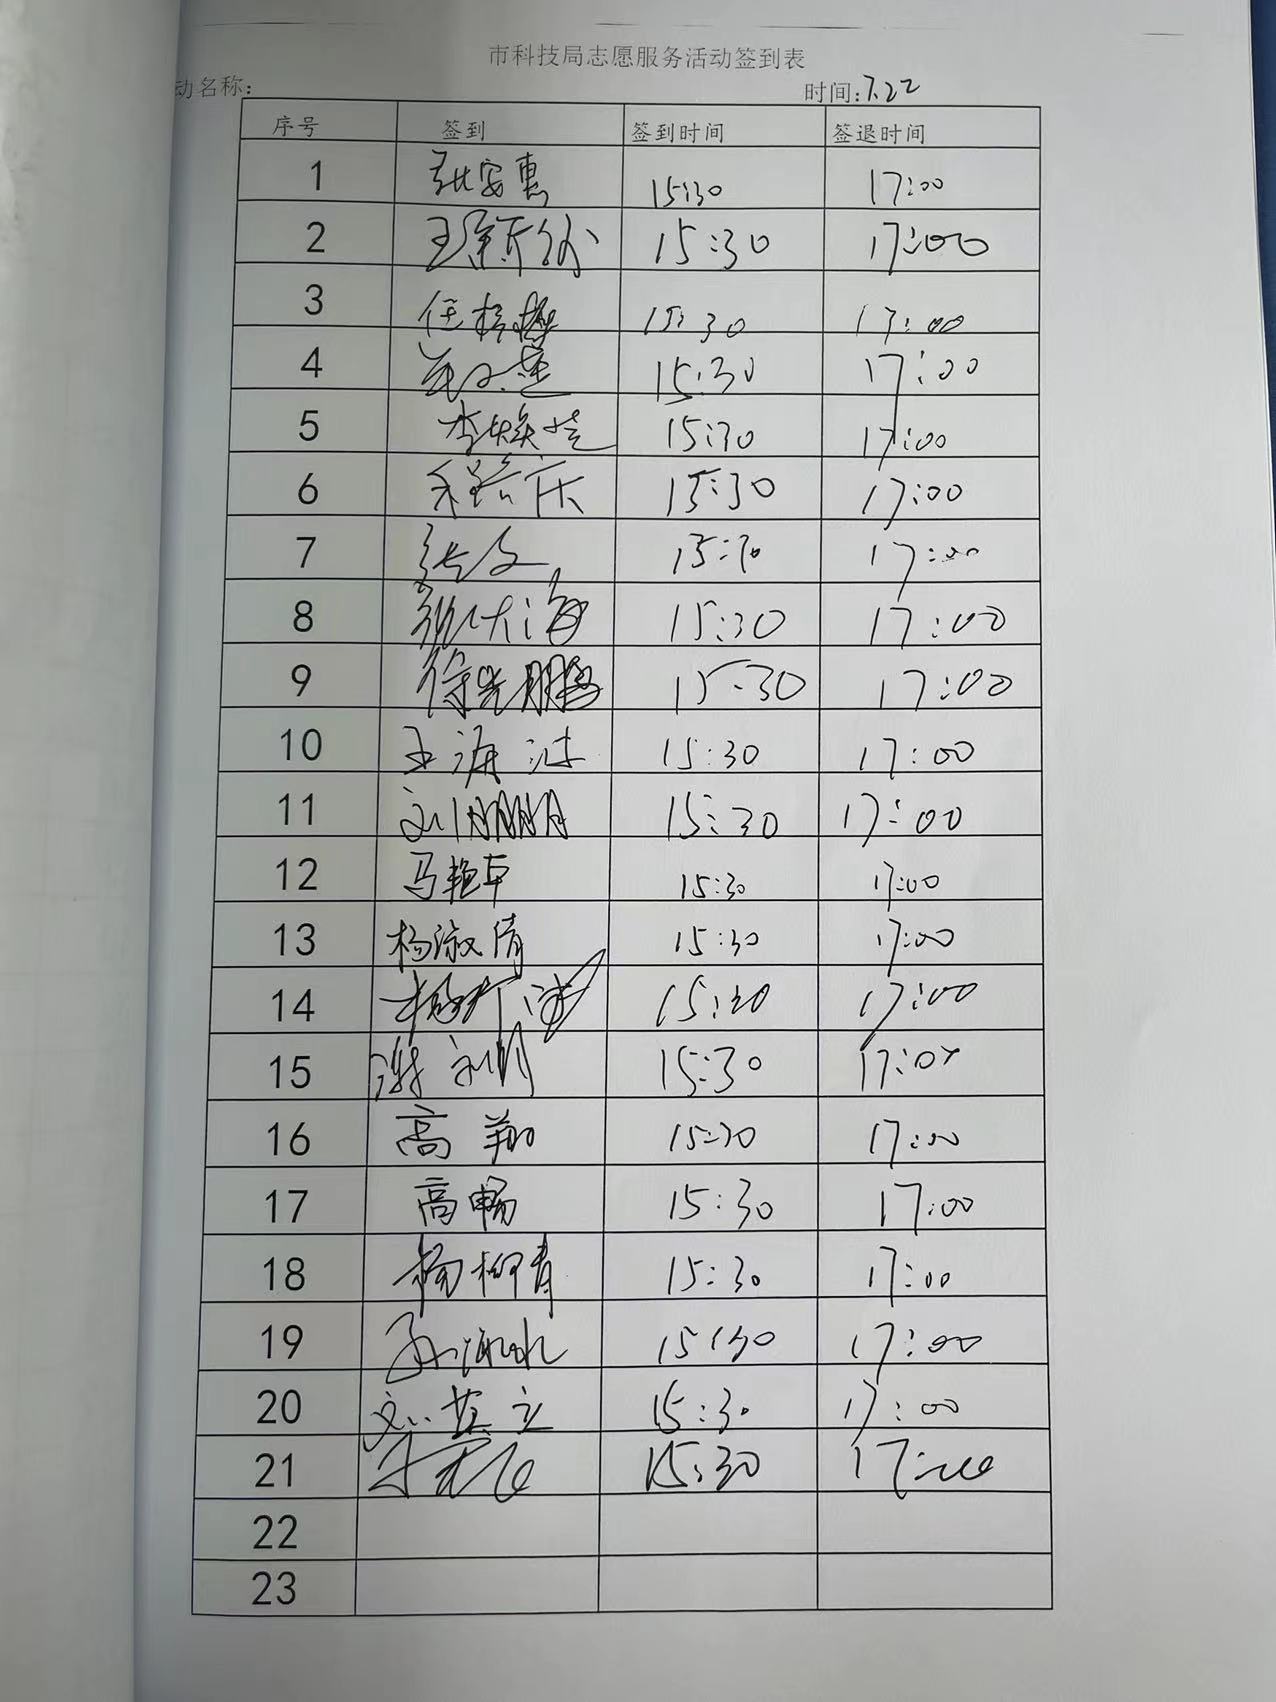 市科技局志愿服务活动签到表
动名称: 时间:7.22
序号 签到 签到时间 签退时间
1 张安惠 15:30 17:00
2 15:30 17:00
3 15:30 17:00
4 15:30 17:00
5 15:30 17:00
6 15:30 17:00
7 15:30 17:00
8 15:30 17:00
9 徐光鹏 15:30 17:00
10 王海 15:30 17:00
11 刘朋朋 15:30 17:00
12 马艳卓 15:30 17:00
13 杨淑倩 15:30 17:00
14 15:30 17:00
15 15:30 17:00
16 高翔 15:30 17:00
17 高畅 15:30 17:00
18 杨柳青 15:30 17:00
19 15:30 17:00
20 15:30 17:00
21 15:30 17:00
22
23